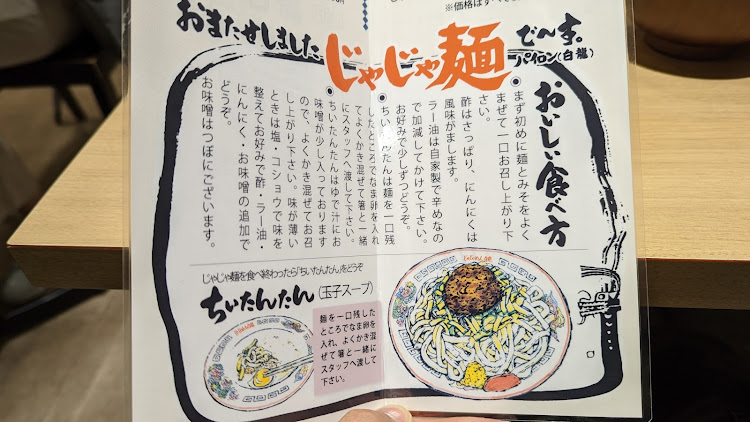 ※価格はす
おまたせしました。
じゃじゃ麺
で〜す。
パイロン(白龍)
おいしい食べ方
●まず初めに麺とみそをよく
まぜて一口お召し上がり下
さい。
酢はさっぱり、にんにくは
風味がまします。
ラー油は自家製で辛めなの
で加減してかけて下さい。
お好みで少しずつどうぞ。
●ちいたんたんは麺を一口残
したところでなま卵を入れ
てよくかき混ぜて箸と一緒
にスタッフへ渡して下さい。
ちいたんたんはゆで汁にお
味噌が少し入っております
ので、よくかき混ぜてお召
し上がり下さい。味が薄い
ときは塩・コショウで味を
整えてお好みで酢・ラー油・
にんにく・お味噌の追加で
どうぞ。
お味噌はつぼにございます。
じゃじゃ麺を食べ終わったら「ちいたんたん」をどうぞ
ちいたんたん(玉子スープ)
麺を一口残した
ところでなま卵を
入れ、よくかき混
ぜて箸と一緒に
スタッフへ渡して
下さい。